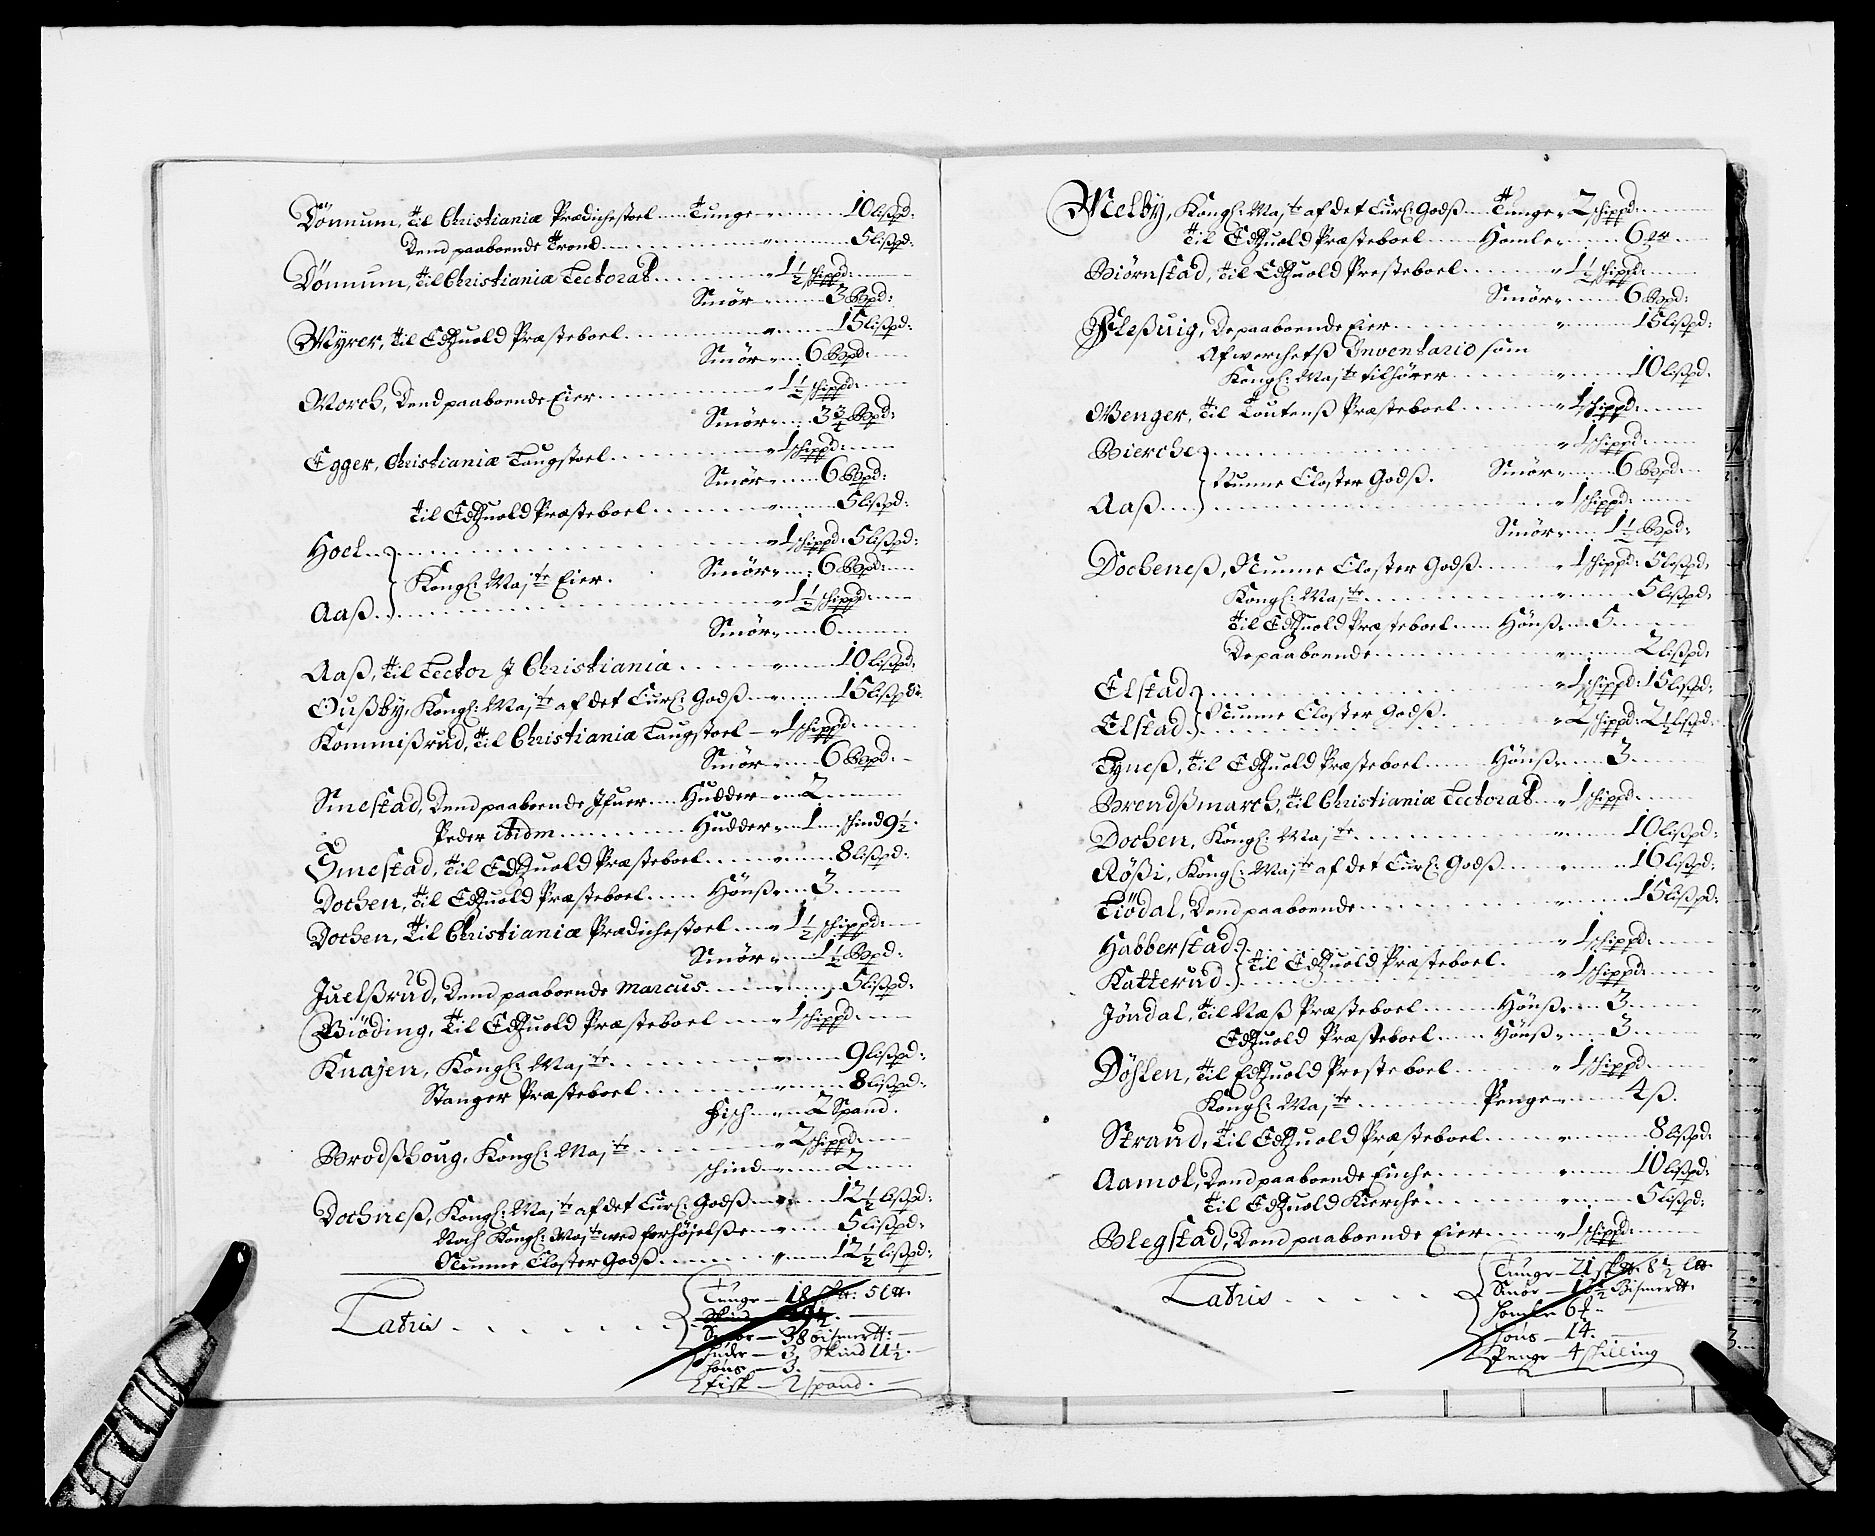 Dönnum, til Christianiæ Prædichestoel Tunge 10 lißpd:
Dend paaboende Trond 5 lißpd:
Dönnum, til Christianiæ Lectorat 1½ schippd:
Smör 3 Bßpd:
Myrer, til Edzuold Præsteboel 15 lißpd:
Smör 6 Bßpd:
Morch, Dend paaboende Eier 1½ schippd:
Smör 3¾ Bßpd:
Egger, Christianiæ Laugstoel 1 schippd:
Smör 6 Bßpd:
til Edzuold Præsteboel 5 lißpd:
Hoel 1 schippd: 5 lißpd:
Kongl: Majte Eier. Smör 6 Bßpd:
Aaß 1½ schippd:
Smör 6
Aaß, til Lector J Christiania 10 lißpd:
Oußby, Kongl: Majte af det Curl: Godß 15 lißpd:
Kommißrud, til Christianiæ Laugstoel 1 schippd:
Smör 6 Bßpd:
Smestad, Dend paaboende Ifuer Hudder 2
Peder ibidm Hudder 1 schind 9½
Smestad, til Edzuold Præsteboel 8 lißpd:
Dochen, til Edzuold Præsteboel Hönß 3
Dochen, til Christianiæ Prædichestoel 1½ schippd:
Smör 1½ Bßpd:
Juelßrud, Dend paaboende Marcus 5 lißpd:
Biöding, til Edzuold Præsteboel 1 schippd:
Knajen, Kongl: Majte 9 lißpd:
Stanger Præsteboel 8 lißpd:
Fisch 2 Spand.
Brodßhoug, Kongl: Majte 2 schippd:
schind 2
Dochneß, Kongl: Majte af det Curl: Godß 12½ lißpd:
Noch Kongl: Majte wed forhöjelße 5 lißpd:
Nunne Closter Godß 12½ lißpd:
Latris
Tunge — 18 sk℔: 5 L℔.
Smör — 38 bismer℔:
Huder — 3. Skind 11½
Höns — 3.
Fisk — 2 spand.
Melby, Kongl: Majte af det Curl: Godß Tunge 2 schippd:
til Edzuold Præsteboel Homle 6
Biörnstad, til Edzuold Presteboel 1½ schippd:
Smör 6 Bßpd:
Fleßuig, De paaboende Eier 15 lißpd:
Af werchetß Inventario som
Kongl: Majte tilhörer 10 lißpd:
Wenger, til Toutenß Præsteboel 1 schippd:
Bierche 1 schippd:
Nunne Closter Godß. Smör 6 Bßpd:
Aaß 1 schippd:
Smör 1½ Bßpd:
Docheneß, Nunne Closter Godß 1 schippd: 5 lißpd:
Kongl: Majte 5 lißpd:
til Edzuold Præsteboel Hönß 5
De paaboende 2 lißpd:
Elstad 1 schippd: 15 lißpd:
Nunne Closter Godß.
Elstad 2 schippd: 2½ lißpd:
Tyneß, til Edzuold Præsteboel Hönß 3
Brendßmarch, til Christianiæ Lectorat 1 schippd:
Dochen, Kongl: Majte 10 lißpd:
Rößi, Kongl: Majte af det Curl: Godß 16 lißpd:
Tiödal, Dend paaboende 15 lißpd:
Habberstad 1 schippd:
til Edzuold Præsteboel.
Katterud 1 schippd:
Jöndal, til Næß Præsteboel Hönß 3
Edzuold Præsteboel Hönß 3
Döhlen, til Edzuold Presteboel 1 schippd:
Kongl: Majte Penge 4 ß.
Strand, til Edzuold Præsteboel 8 lißpd:
Aamol, Dend paaboende Enche 10 lißpd:
til Edzuold Kierche 5 lißpd:
Blegstad, Dend paaboende Eier 1 schippd:
Latris
Tunge — 21 sk℔: 8½ L℔.
Smör — 13½ Bismer℔.
Homle 6
Höns — 14.
Penge — 4 skilling